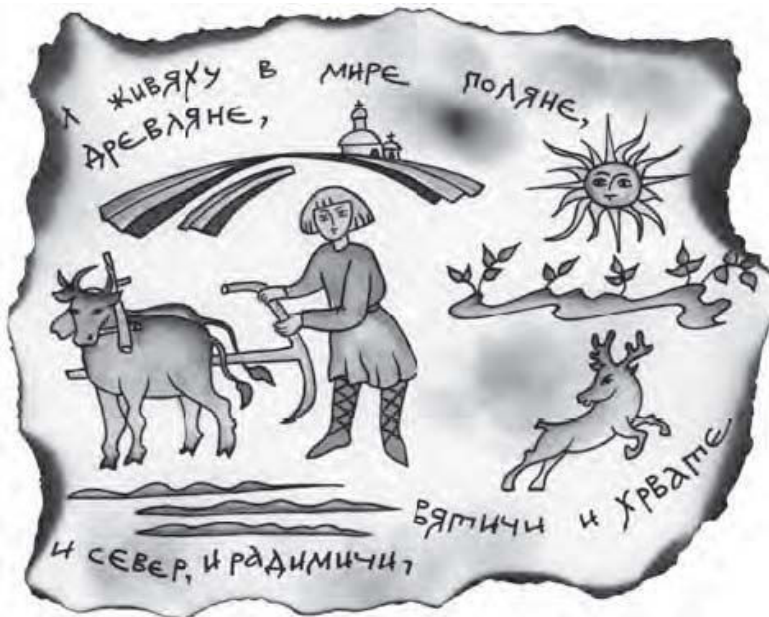 А живяху в мире поляне,
древляне,
и север, и радимичи,
вятичи и хрвате